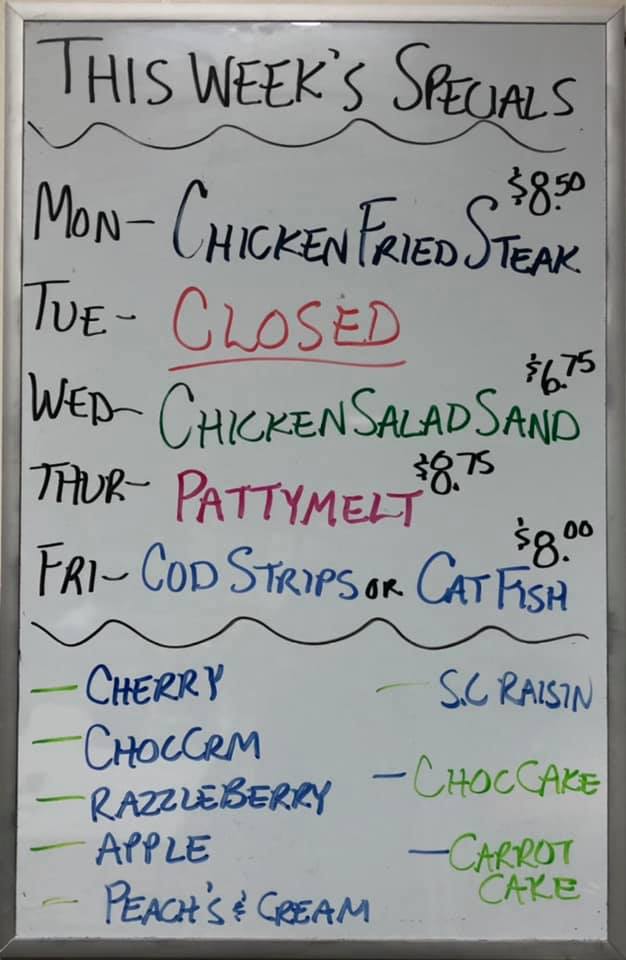 THIS WEEK'S SPECIALS
MON- CHICKEN FRIED STEAK $8.50
TUE- CLOSED
WED- CHICKEN SALAD SAND $6.75
THUR- PATTYMELT $8.75
FRI- COD STRIPS OR CAT FISH $8.00
- CHERRY
- CHOC CRM
- RAZZLEBERRY
- APPLE
- PEACH'S & CREAM
- S.C RAISIN
- CHOC CAKE
- CARROT
CAKE